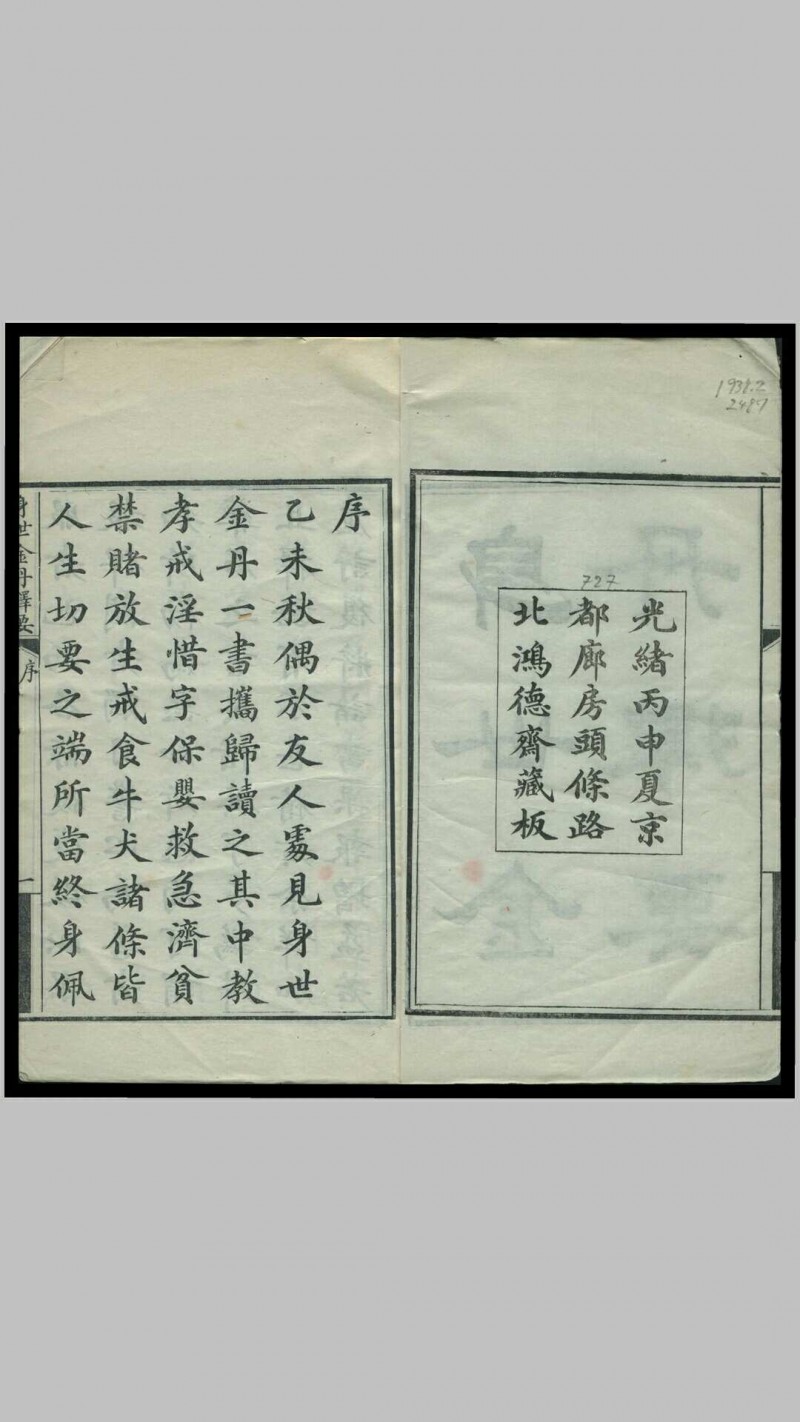 1938.2
2487
727
光緒丙申夏京
都廊房頭條路
北鴻德齋藏板
序
乙未秋偶於友人處見身世
金丹一書攜歸讀之其中教
孝戒淫惜字保嬰救急濟貧
禁賭放生戒食牛犬諸條皆
人生切要之端所當終身佩
身世金丹擇要
序
一